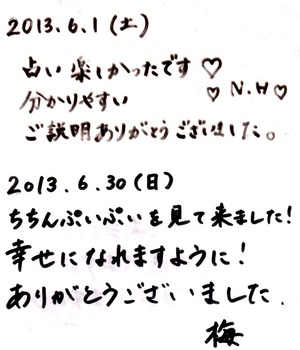 2013.6.1(土)
占い楽しかったです♡
分かりやすい ♡ N.H♡
ご説明ありがとうございました。
2013.6.30(日)
ちちんぷいぷいを見て来ました!
幸せになれますように!
ありがとうございました.
梅